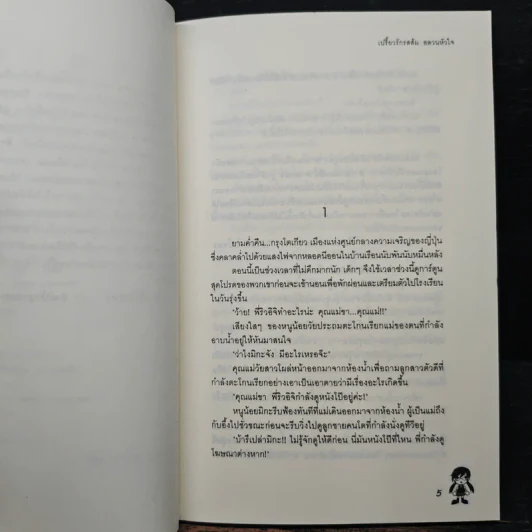 เปรี้ยวรักรสส้ม อลวนหัวใจ
1
ยามค่ำคืน...กรุงโตเกียว เมืองแห่งศูนย์กลางความเจริญของญี่ปุ่น
ซึ่งคลาคล่ำไปด้วยแสงไฟจากหลอดนีออนในบ้านเรือนนับพันนับหมื่นหลัง
ตอนนี้เป็นช่วงเวลาที่ไม่ดึกมากนัก เด็กๆ จึงใช้เวลาช่วงนี้ดูการ์ตูน
สุดโปรดของพวกเขาก่อนจะเข้านอนเพื่อพักผ่อนและเตรียมตัวไปโรงเรียน
ในวันรุ่งขึ้น
"ว้าย! พี่ริวอิจิทำอะไรน่ะ คุณแม่ขา...คุณแม่!!"
เสียงใสๆ ของหนูน้อยวัยประถมตะโกนเรียกแม่ของตนที่กำลัง
อาบน้ำอยู่ให้หันมาสนใจ
"ว่าไงมิกะจัง มีอะไรเหรอจ๊ะ"
คุณแม่วัยสาวโผล่หน้าออกมาจากห้องน้ำเพื่อถามลูกสาวตัวดีที่
กำลังตะโกนเรียกอย่างเอาเป็นเอาตายว่ามีเรื่องอะไรเกิดขึ้น
"คุณแม่ขา พี่ริวอิจิกำลังดูหนังโป๊อยู่ค่ะ!"
หนูน้อยมิกะรีบฟ้องทันทีที่แม่เดินออกมาจากห้องน้ำ ผู้เป็นแม่ถึง
กับอึ้งไปชั่วขณะก่อนจะรีบวิ่งไปดูลูกชายคนโตที่กำลังนั่งดูทีวีอยู่
"บ้ารึเปล่ามิกะ!! ไม่รู้จักดูให้ดีก่อน นี่มันหนังโป๊ที่ไหน พี่กำลังดู
โฆษณาต่างหาก!"
5